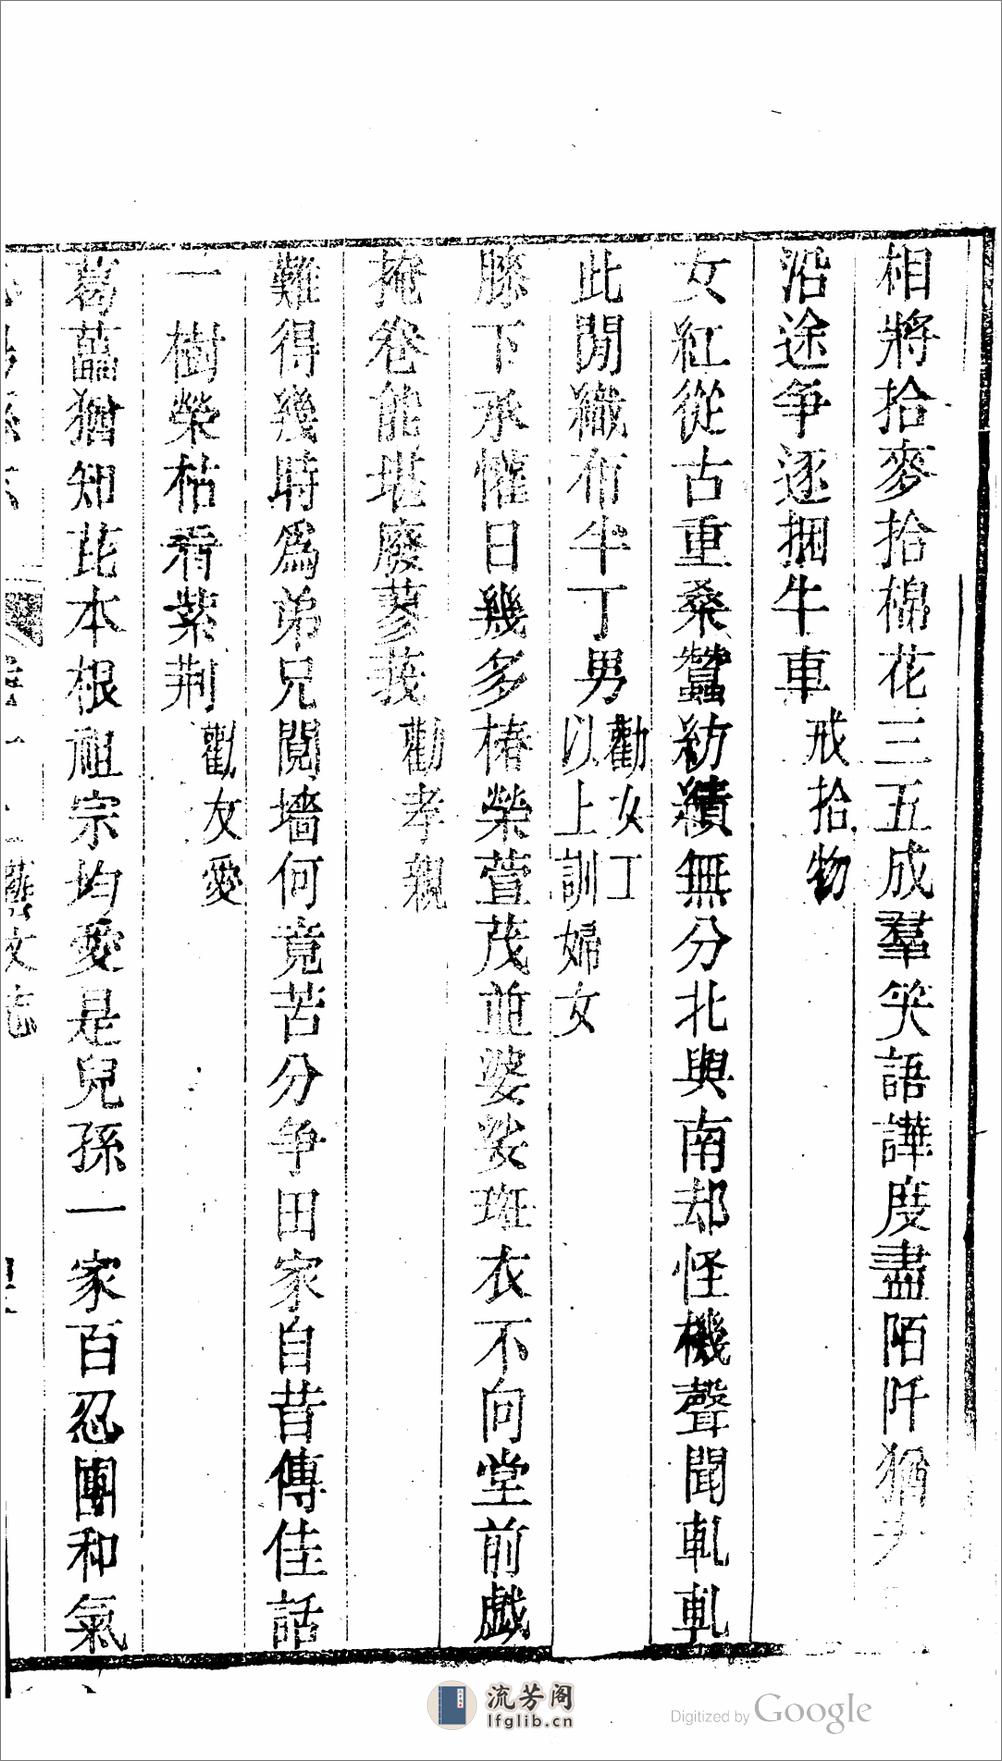 相將拾麥拾棉花三五成羣笑語譁度盡陌阡猶
沿途争逐捆牛車 戒拾物
女紅從古重桑蠶紡績無分北與南却怪機聲聞軋軋
此閒織布半丁男 勸女工
以上訓婦女
膝下承懽日幾多椿榮萱茂並婆娑斑衣不向堂前戯
掩卷能堪廢蓼莪 勸孝親
難得幾時爲弟兄鬩墻何竟苦分争田家自昔傳佳話
一樹榮枯看紫荆 勸友愛
葛藟猶知芘本根祖宗均愛是兒孫一家百忍團和氣
藝文志
流芳阁
lfglib.cn
Digitized by Google